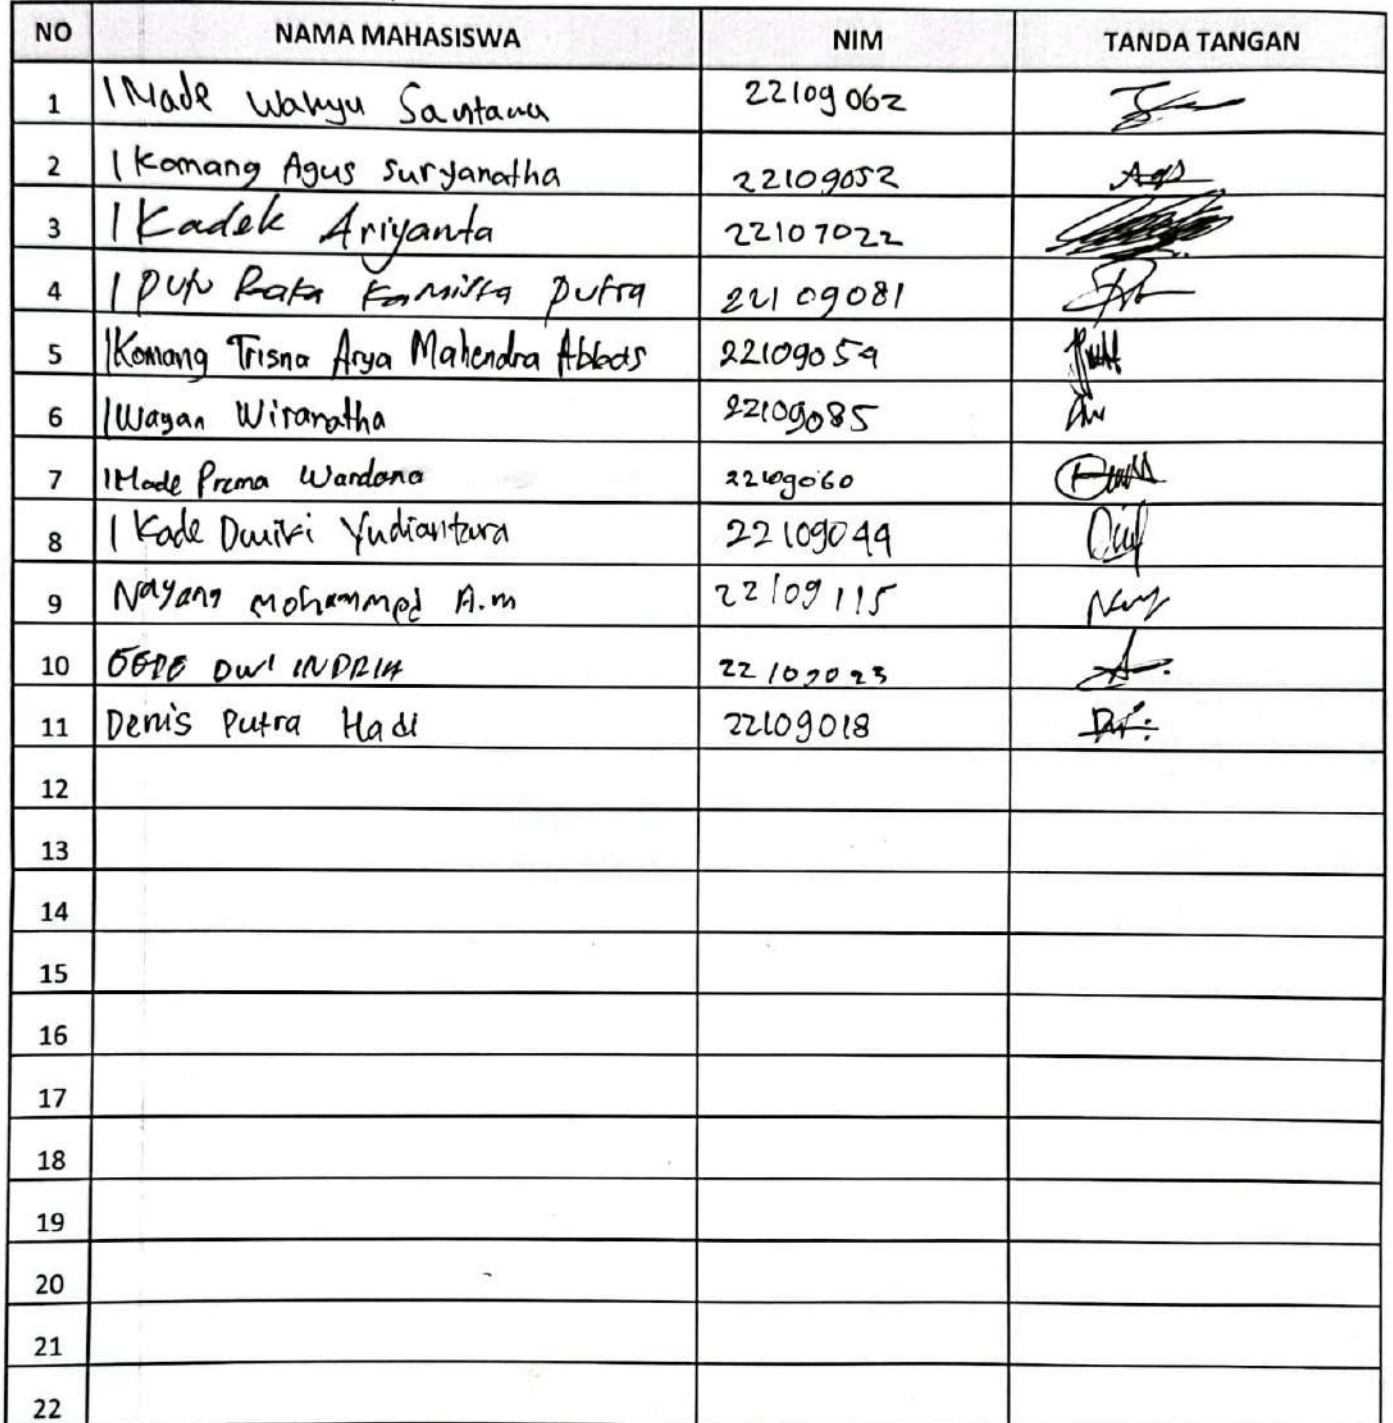 NO NAMA MAHASISWA NIM TANDA TANGAN
1 I Made Wahyu Santana 22109062
2 I Komang Agus Suryanatha 22109052
3 I Kadek Ariyanta 22107022
4 I Putu Putra 22109081
5 I Komang Trisna Arya Mahendra 22109054
6 I Wayan Wiranatha 22109085
7 I Made Prema Wardana 22109060
8 I Kade Dwiki Yudiantara 22109044
9 Nayang Mohammed A.m 22109115
10 GEDE DWI INDRIA
11 Denis Putra Hadi 22109018
12
13
14
15
16
17
18
19
20
21
22